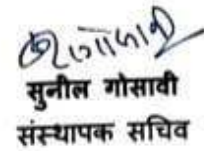 सुनील गोसावी
संस्थापक सचिव